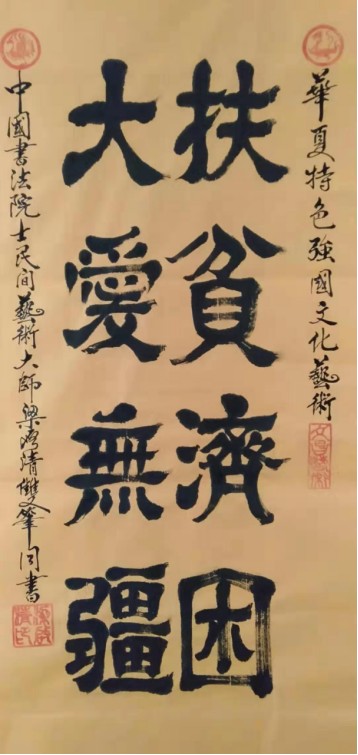 華夏特色強國文化藝術
扶貧濟困
大愛無疆
中國書法院士民間藝術大師梁鴻清雙筆同書